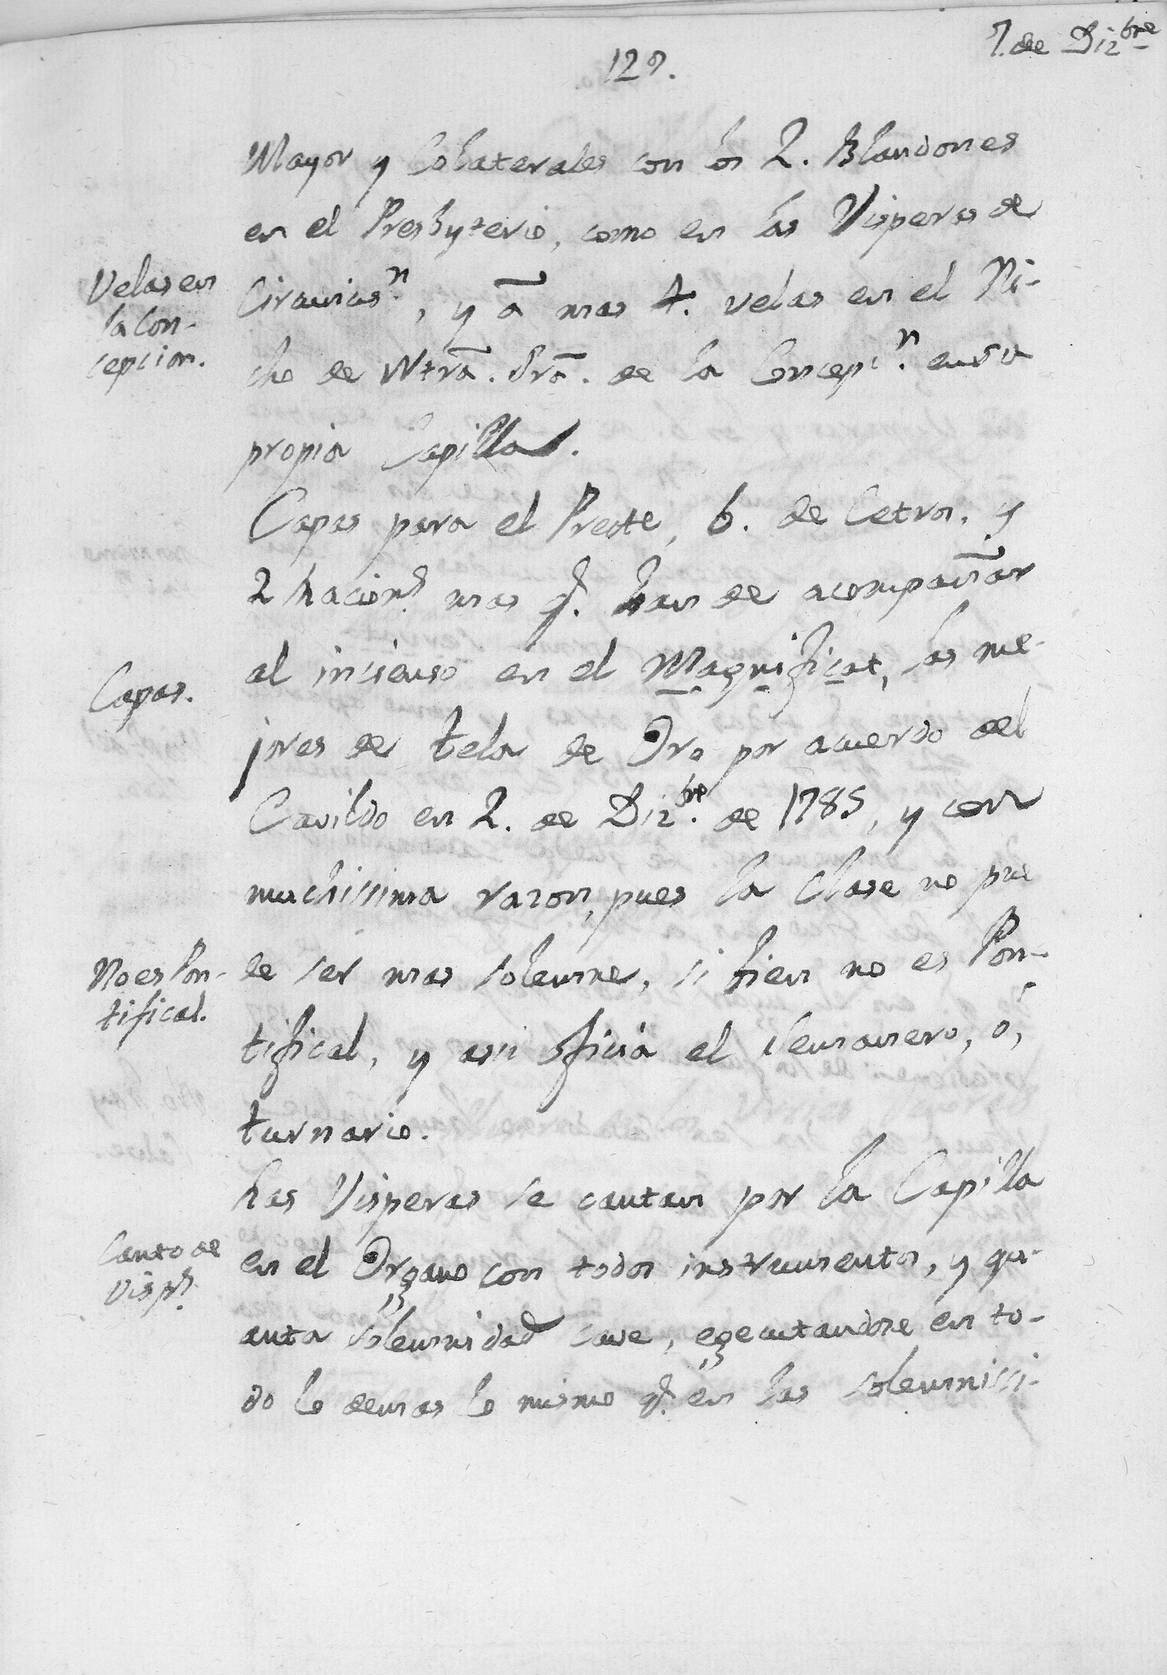 7. de Dizbre
127.
Mayor y Colaterales con los 2. Blandones
en el Presbyterio, como en las Visperas de
Velas en
la Con-
cepcion.
Circuncisn., y â mas 4. velas en el Ni-
cho de Ntrâ. Srâ. de la Concepcn. en su
propia Capilla.
Capas para el Preste, 6. de Cetros, y
2 Racions mas q. han de acompañar
Capas.
al incienso en el Magnificat, las me-
jores de tela de Oro por acuerdo del
Cavildo en 2. de Dizbre. de 1785, y con
muchissima razon, pues la Clase no pue
No es Pon-
tifical.
de ser mas solemne, si bien no es Pon-
tifical, y assi oficia el Semanero, ó,
turnario.
Las Visperas se cantan por la Capilla
Canto de
Visps.
en el Organo con todos instrumentos, y qu-
anta solemnidad cave, egecutandose en to-
do lo demas lo mismo q. en las solemnissi-